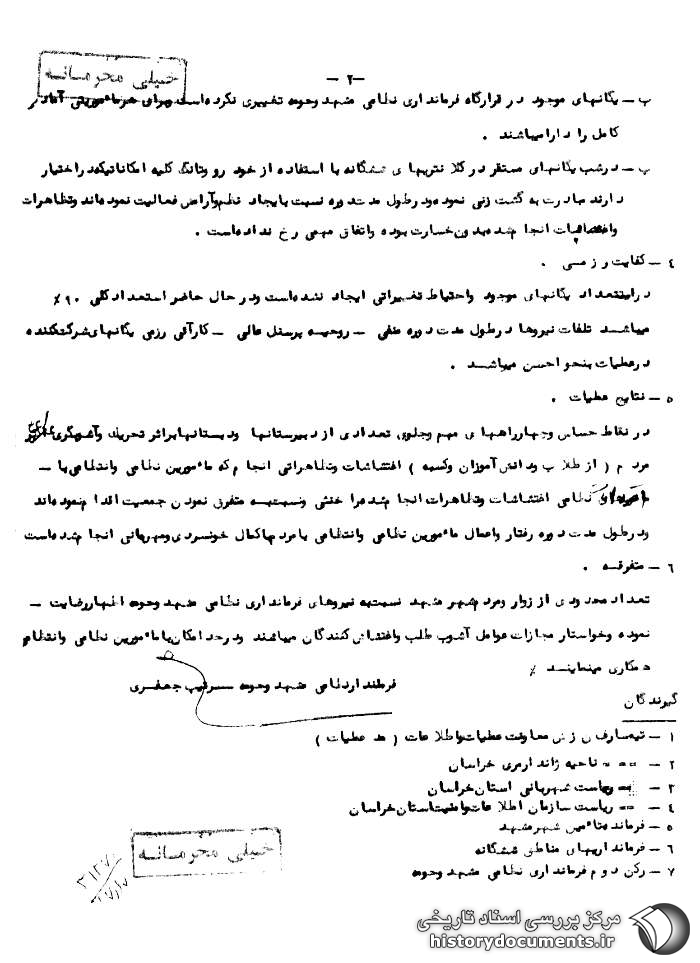 خیلی محرمانه
-۲-
پ - یگانهای موجود در قرارگاه فرمانداری نظامی مشهد وحومه تغییری نکرده است برای هر مأموریتی آمادگی
کامل را دارا میباشند .
پ - در شب یگانهای مستقر در کلانتریهای ششگانه با استفاده از خود رو وتانک کلیه امکاناتیکه در اختیار
دارند مبادرت به گشت زنی نموده ودر طول مدت دوره نسبت بایجاد نظم وآرامش فعالیت نموده اند وتظاهرات
واغتشاشات انجام شده بدون خسارت بوده واتفاق مهمی رخ نداده است .
٤ - کفایت رزمی .
در استعداد یگانهای موجود واحتیاط تغییراتی ایجاد نشده است ودر حال حاضر استعداد کلی ٩٠٪
میباشد تلفات نیروها در طول مدت دوره منفی - روحیه پرسنل عالی - کارآئی رزمی یگانهای شرکت کننده
در عملیات بنحو احسن میباشد .
٥ - نتایج عملیات .
در نقاط حساس وچهارراههای مهم وجلوی تعدادی از دبیرستانها ودبستانها براثر تحریک وآشوبگری
مردم ( از طلاب ودانش آموزان وکسبه ) اغتشاشات وتظاهراتی انجام که مأمورین نظامی وانتظامی با -
نظامی اغتشاشات وتظاهرات انجام شده را خنثی ونسبت به متفرق نمودن جمعیت اقدام نموده اند
ودر طول مدت دوره رفتار واعمال مأمورین نظامی وانتظامی با مردم باکمال خونسردی ومهربانی انجام شده است
٦ - متفرقه .
تعداد معدودی از زوار ومردم شهر مشهد نسبت به نیروهای فرمانداری نظامی مشهد وحومه اظهار رضایت -
نموده وخواستار مجازات عوامل آشوب طلب واغتشاش کنندگان میباشند ودر حد امکان با مأمورین نظامی وانتظامی
همکاری مینمایند ٪
فرماندار نظامی مشهد وحومه سرتیپ جعفری
گیرندگان
۱ - تیمسار معاونت عملیات واطلاعات ( مد عملیات )
۲ - == ناحیه ژاندارمری خراسان
۳ - == ریاست شهربانی استان خراسان
٤ - == ریاست سازمان اطلاعات وامنیت استان خراسان
٥ - فرمانده تأمین شهر مشهد
٦ - فرمانداریهای مناطق ششگانه
۷ - رکن دوم فرمانداری نظامی مشهد وحومه
خیلی محرمانه
مرکز بررسی اسناد تاریخی
historydocuments.ir